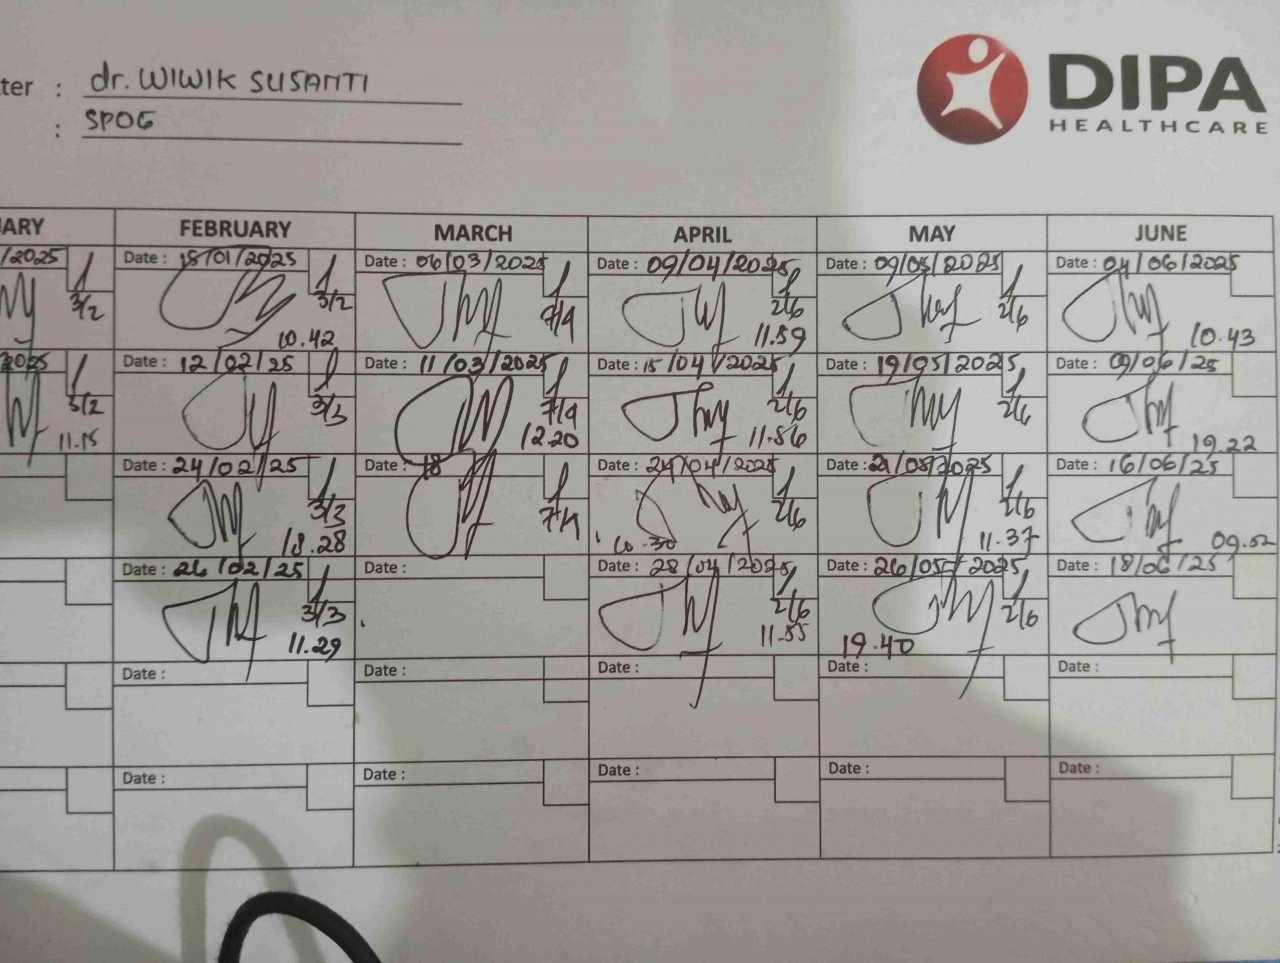 ter : dr. WIWIK SUSANTI
: SPOG
DIPA
HEALTHCARE
ARY FEBRUARY MARCH APRIL MAY JUNE
/2025 Date : 18/01/2025 Date : 06/03/2025 Date : 09/04/2025 Date : 09/05/2025 Date : 04/06/2025
3/2 3/2 7/4 2/6 2/6
10.42 11.59 10.43
2025 Date : 12/02/25 Date : 11/03/2025 Date : 15/04/2025 Date : 19/05/2025 Date : 09/06/25
3/2 3/3 7/4 2/6 2/6
11.15 12.20 11.56 19.22
Date : 24/02/25 Date : 18 Date : 24/04/2025 Date : 21/05/2025 Date : 16/06/25
3/3 7/4 2/6 2/6
18.28 10.30 11.37 09.52
Date : 26/02/25 Date : Date : 28/04/2025 Date : 26/05/2025 Date : 18/06/25
3/3 2/6 2/6
11.29 11.55 19.40
Date : Date : Date : Date : Date :
Date : Date : Date : Date : Date :